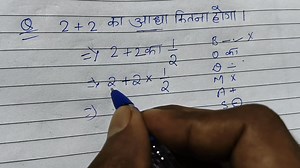 Q 2+2 का आधा कितना होगा।
⇒ 2+2 का 1/2
⇒ 2+2 × 1/2
⇒
B — x
O का
D ÷
M ×
A +
S